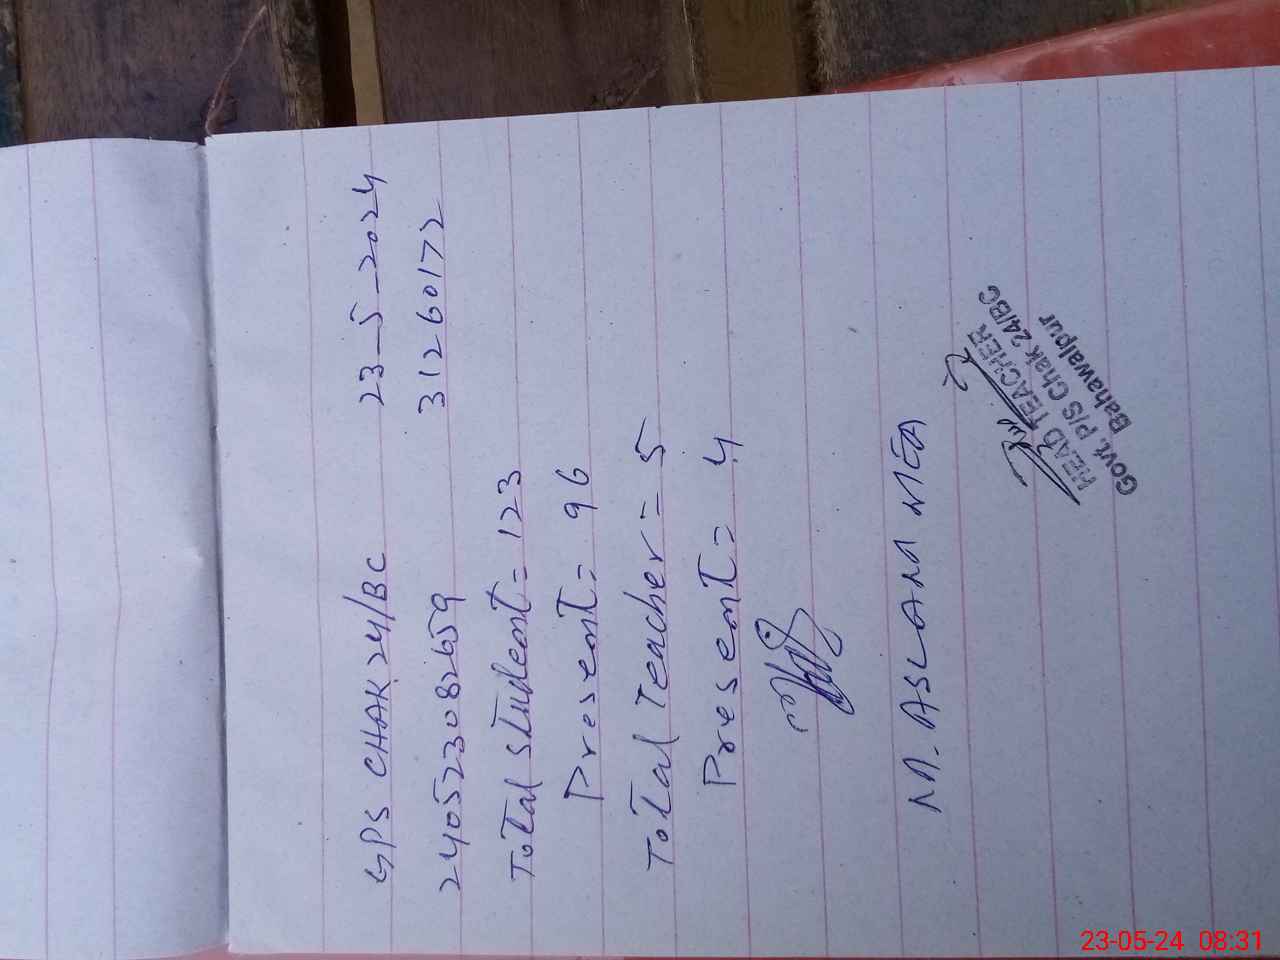 GPS CHAK 24/BC 23-5-2024
240523082659 31260172
Total Student = 123
Present = 96
Total Teacher = 5
Present = 4
M. ASLAM MEA
HEAD TEACHER
Govt. P/S Chak 24/BC
Bahawalpur
23-05-24 08:31